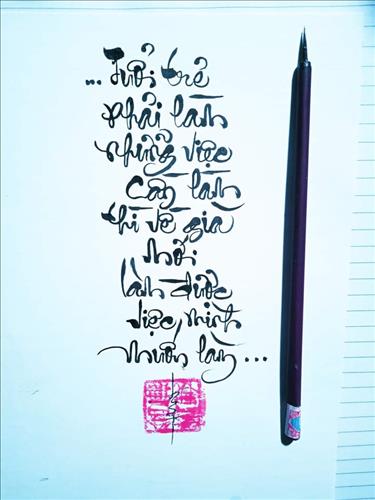 ... Tuổi trẻ
phải làm
những việc
cần làm
thì về già
mới
làm được
việc mình
muốn làm ...